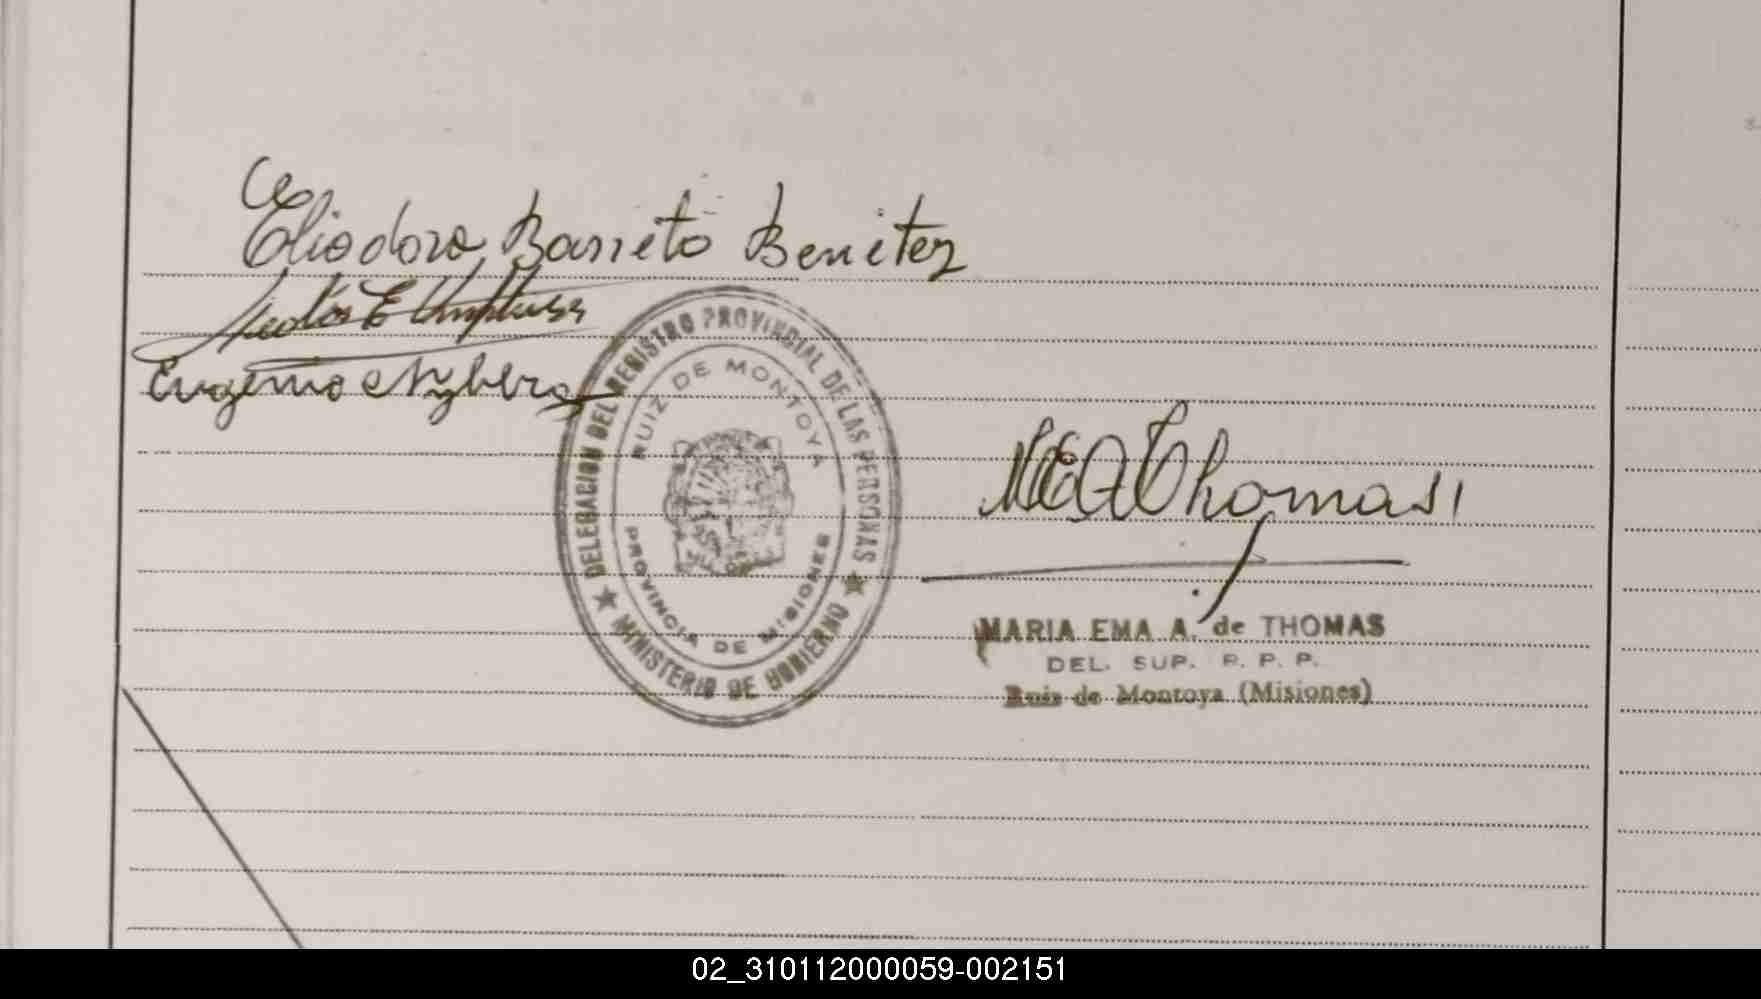 Eliodoro Barreto Benitez
Eugenio Nyberg
DELEGACION DEL REGISTRO PROVINCIAL DE LAS PERSONAS
RUIZ DE MONTOYA
PROVINCIA DE MISIONES
★ MINISTERIO DE GOBIERNO ★
MEAThomas
MARIA EMA A. de THOMAS
DEL. SUP. R. P. P.
Ruiz de Montoya (Misiones)
02_310112000059-002151